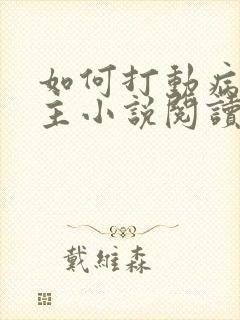 如何打動病
主小說閱讀
戴維森